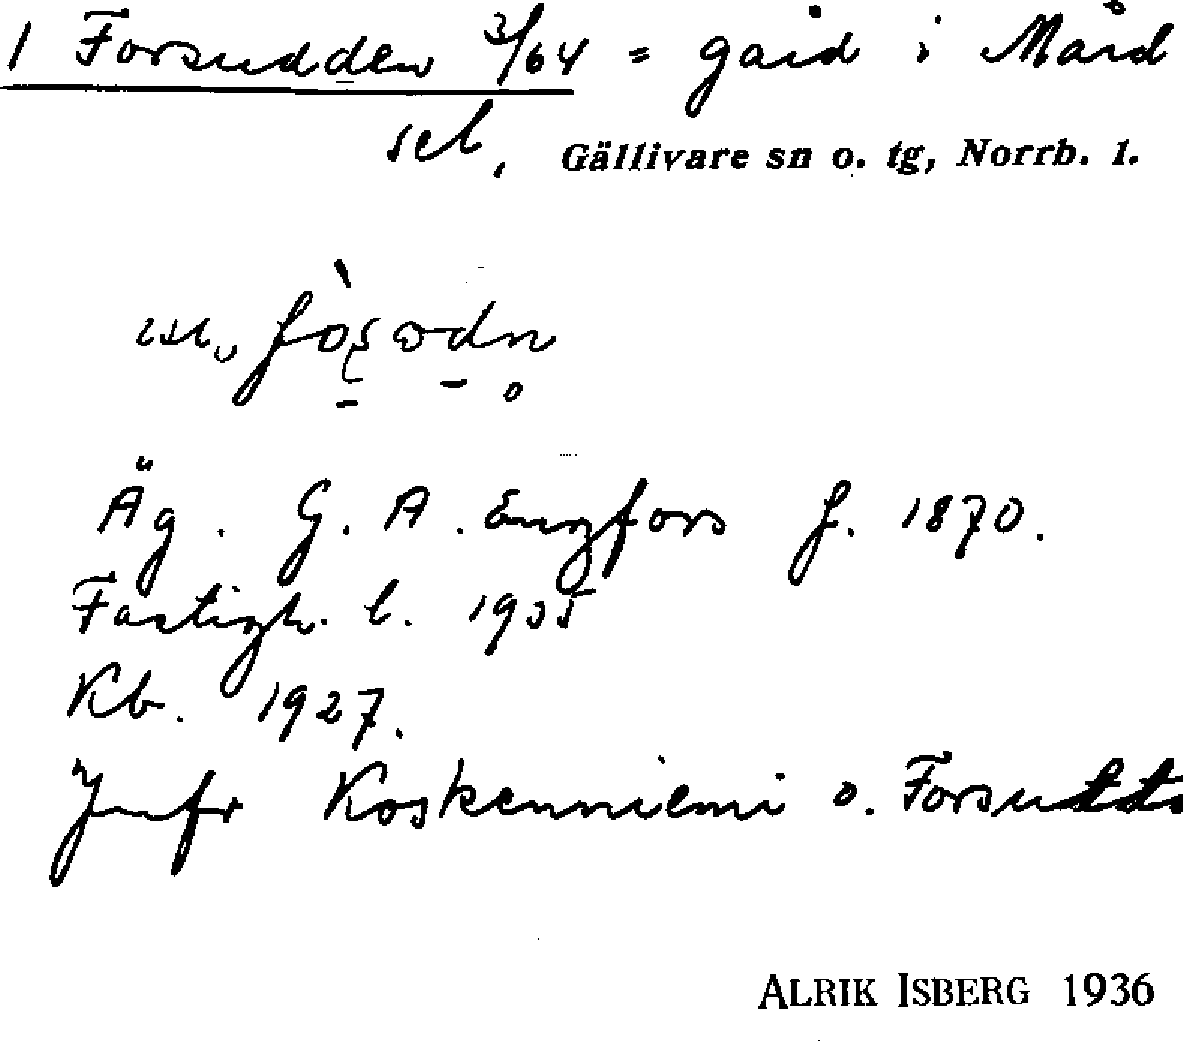 1 Forsudden 3/64 = gård i Mård
sel, Gällivare sn o. tg, Norrb. l.
Äg. G. A. Engfors f. 1870.
Fastigh. l. 1935
Kb. 1927.
Jmfr Koskenniemi o.
ALRIK ISBERG 1936